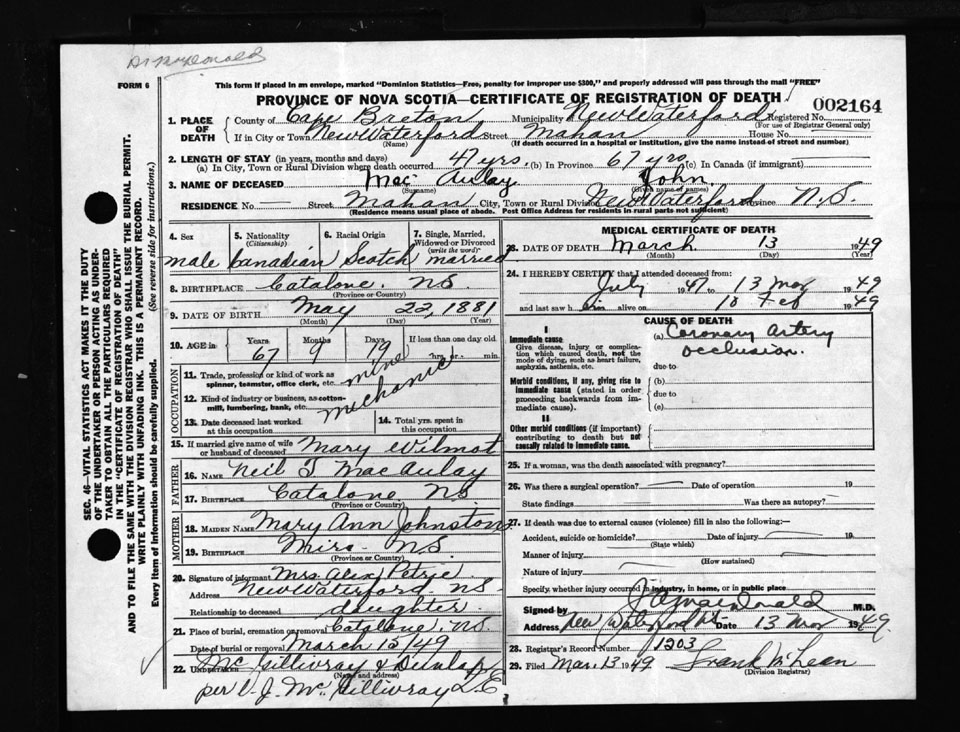 Dr. McDonald
FORM 6
This form if placed in an envelope, marked “Dominion Statistics—Free, penalty for improper use $300,” and properly addressed will pass through the mail “FREE”
PROVINCE OF NOVA SCOTIA—CERTIFICATE OF REGISTRATION OF DEATH
002164
SEC. 46—VITAL STATISTICS ACT MAKES IT THE DUTY
OF THE UNDERTAKER OR PERSON ACTING AS UNDER-
TAKER TO OBTAIN ALL THE PARTICULARS REQUIRED
IN THE “CERTIFICATE OF REGISTRATION OF DEATH”
AND TO FILE THE SAME WITH THE DIVISION REGISTRAR WHO SHALL ISSUE THE BURIAL PERMIT.
WRITE PLAINLY WITH UNFADING INK. THIS IS A PERMANENT RECORD.
Every item of Information should be carefully supplied. (See reverse side for instructions.)
1. PLACE OF DEATH
County of Cape Breton Municipality New Waterford Registered No.
(For use of Registrar General only)
If in City or Town New Waterford Street Mahan House No.
(Name) (If death occurred in a hospital or institution, give the name instead of street and number)
2. LENGTH OF STAY (in years, months and days)
(a) In City, Town or Rural Division where death occurred 47 yrs. (b) In Province 67 yrs (c) In Canada (if immigrant)
3. NAME OF DECEASED Mac Aulay John
(Surname) (Given name or names)
RESIDENCE No. — Street Mahan City, Town or Rural Division New Waterford Province N.S.
(Residence means usual place of abode. Post Office Address for residents in rural parts not sufficient)
4. Sex
male
5. Nationality
(Citizenship)
Canadian
6. Racial Origin
Scotch
7. Single, Married,
Widowed or Divorced
(write the word)
married
8. BIRTHPLACE Catalone. N.S.
(Province or Country)
9. DATE OF BIRTH May 22, 1881
(Month) (Day) (Year)
10. AGE in
Years Months Days If less than one day
67 9 19 hrs. or min.
OCCUPATION
11. Trade, profession or kind of work as
spinner, teamster, office clerk, etc.
mine
12. Kind of industry or business, as cotton-
mill, lumbering, bank, etc.
mechanic
13. Date deceased last worked
at this occupation
14. Total yrs. spent in
this occupation
15. If married give name of wife
or husband of deceased Mary Wilmot
FATHER
16. NAME Neil J Mac Aulay
17. BIRTHPLACE Catalone N.S.
(Province or Country)
MOTHER
18. MAIDEN NAME Mary Ann Johnston
19. BIRTHPLACE Mira N.S.
(Province or Country)
20. Signature of informant Mrs. Alex Petrie
Address New Waterford NS
Relationship to deceased daughter
21. Place of burial, cremation or removal Catalone, N.S.
Date of burial or removal March 15/49
22. UNDERTAKER McGillivray & Dunlap
(Name and address)
per V. J. McGillivray L.E
MEDICAL CERTIFICATE OF DEATH
23. DATE OF DEATH March 13 1949
(Month) (Day) (Year)
24. I HEREBY CERTIFY that I attended deceased from:
July 1947 to 13 Mar 1949
and last saw him alive on 18 Feb 1949
CAUSE OF DEATH
I
Immediate cause
Give disease, injury or compli-
cation which caused death, not the
mode of dying, such as heart failure,
asphyxia, asthenia, etc.
(a) Coronary artery
occlusion.
due to
Morbid conditions, if any, giving rise to
immediate cause (stated in order
proceeding backwards from im-
mediate cause).
(b)
due to
(c)
II
Other morbid conditions (if important)
contributing to death but not
causally related to immediate cause.
25. If a woman, was the death associated with pregnancy?
26. Was there a surgical operation? Date of operation 19
State findings Was there an autopsy?
27. If death was due to external causes (violence) fill in also the following:—
Accident, suicide or homicide? Date of injury 19
(State which)
Manner of injury
(How sustained)
Nature of injury
Specify whether injury occurred in industry, in home, or in public place
Signed by M.D.
Address New Waterford NS Date 13 Mar 1949
28. Registrar's Record Number 1203
29. Filed Mar. 13 1949 Frank McLean
(Division Registrar)